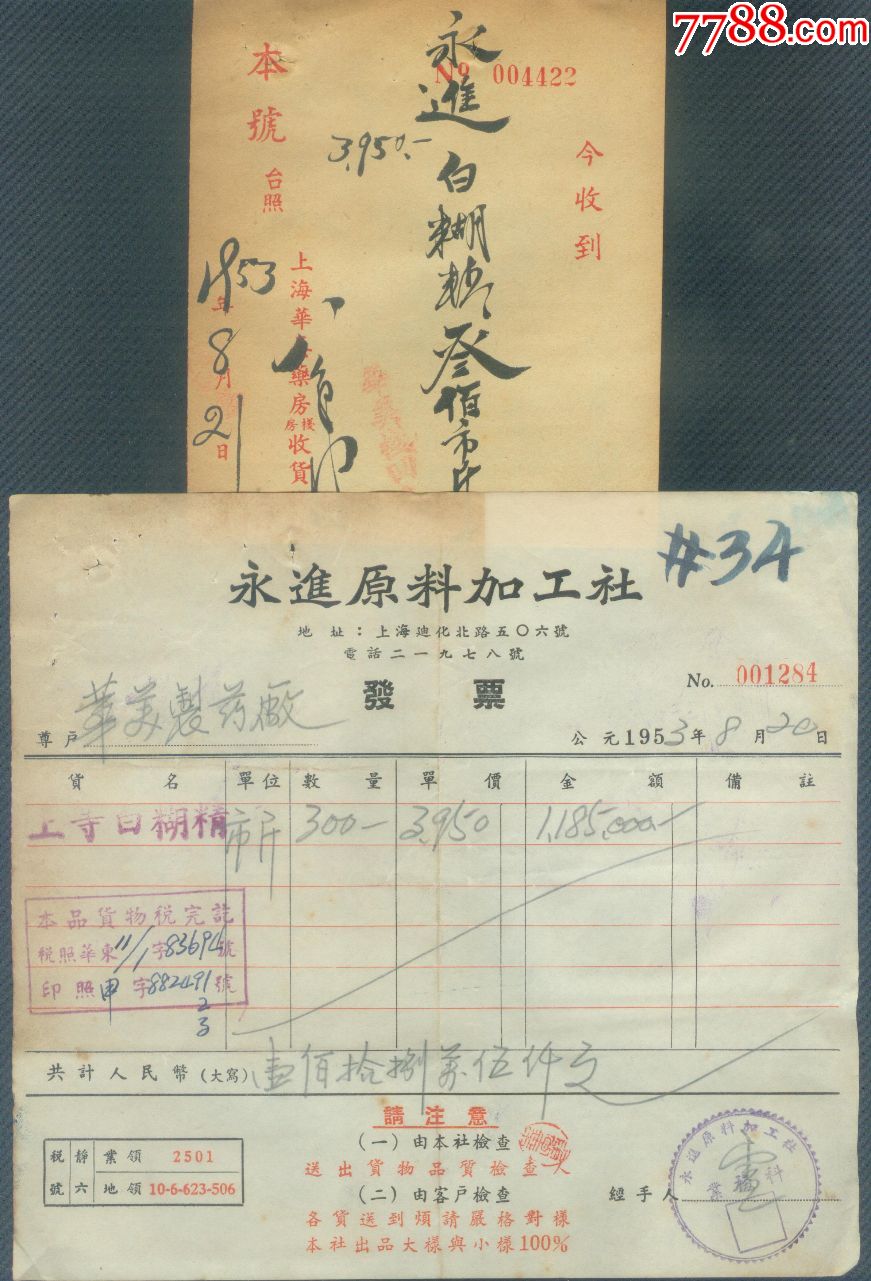 7788.com
No 004422
今收到
永進
白糊精叁佰市斤
3,950.-
本號 台照
上海華美藥房 棧房 收貨
1953年8月21日
#34
永進原料加工社
地址：上海迪化北路五〇六號
電話二一九七八號
發票
No. 001284
尊戶 華美製药廠
公元1953年8月20日
貨名 單位 數量 單價 金額 備註
上等白糊精 市斤 300- 3,950 1,185,000.-
本品貨物税完訖
税照華東11/1字83694號
印照甲字882491號
2
3
共計人民幣(大寫) 壹佰拾捌萬伍仟元
請注意
(一)由本社檢查
送出貨物品質檢查人
(二)由客戶檢查
各貨送到煩請嚴格對樣
本社出品大樣與小樣100%
税號 靜六 業領 2501
地領 10-6-623-506
經手人
永進原料加工社
業務科